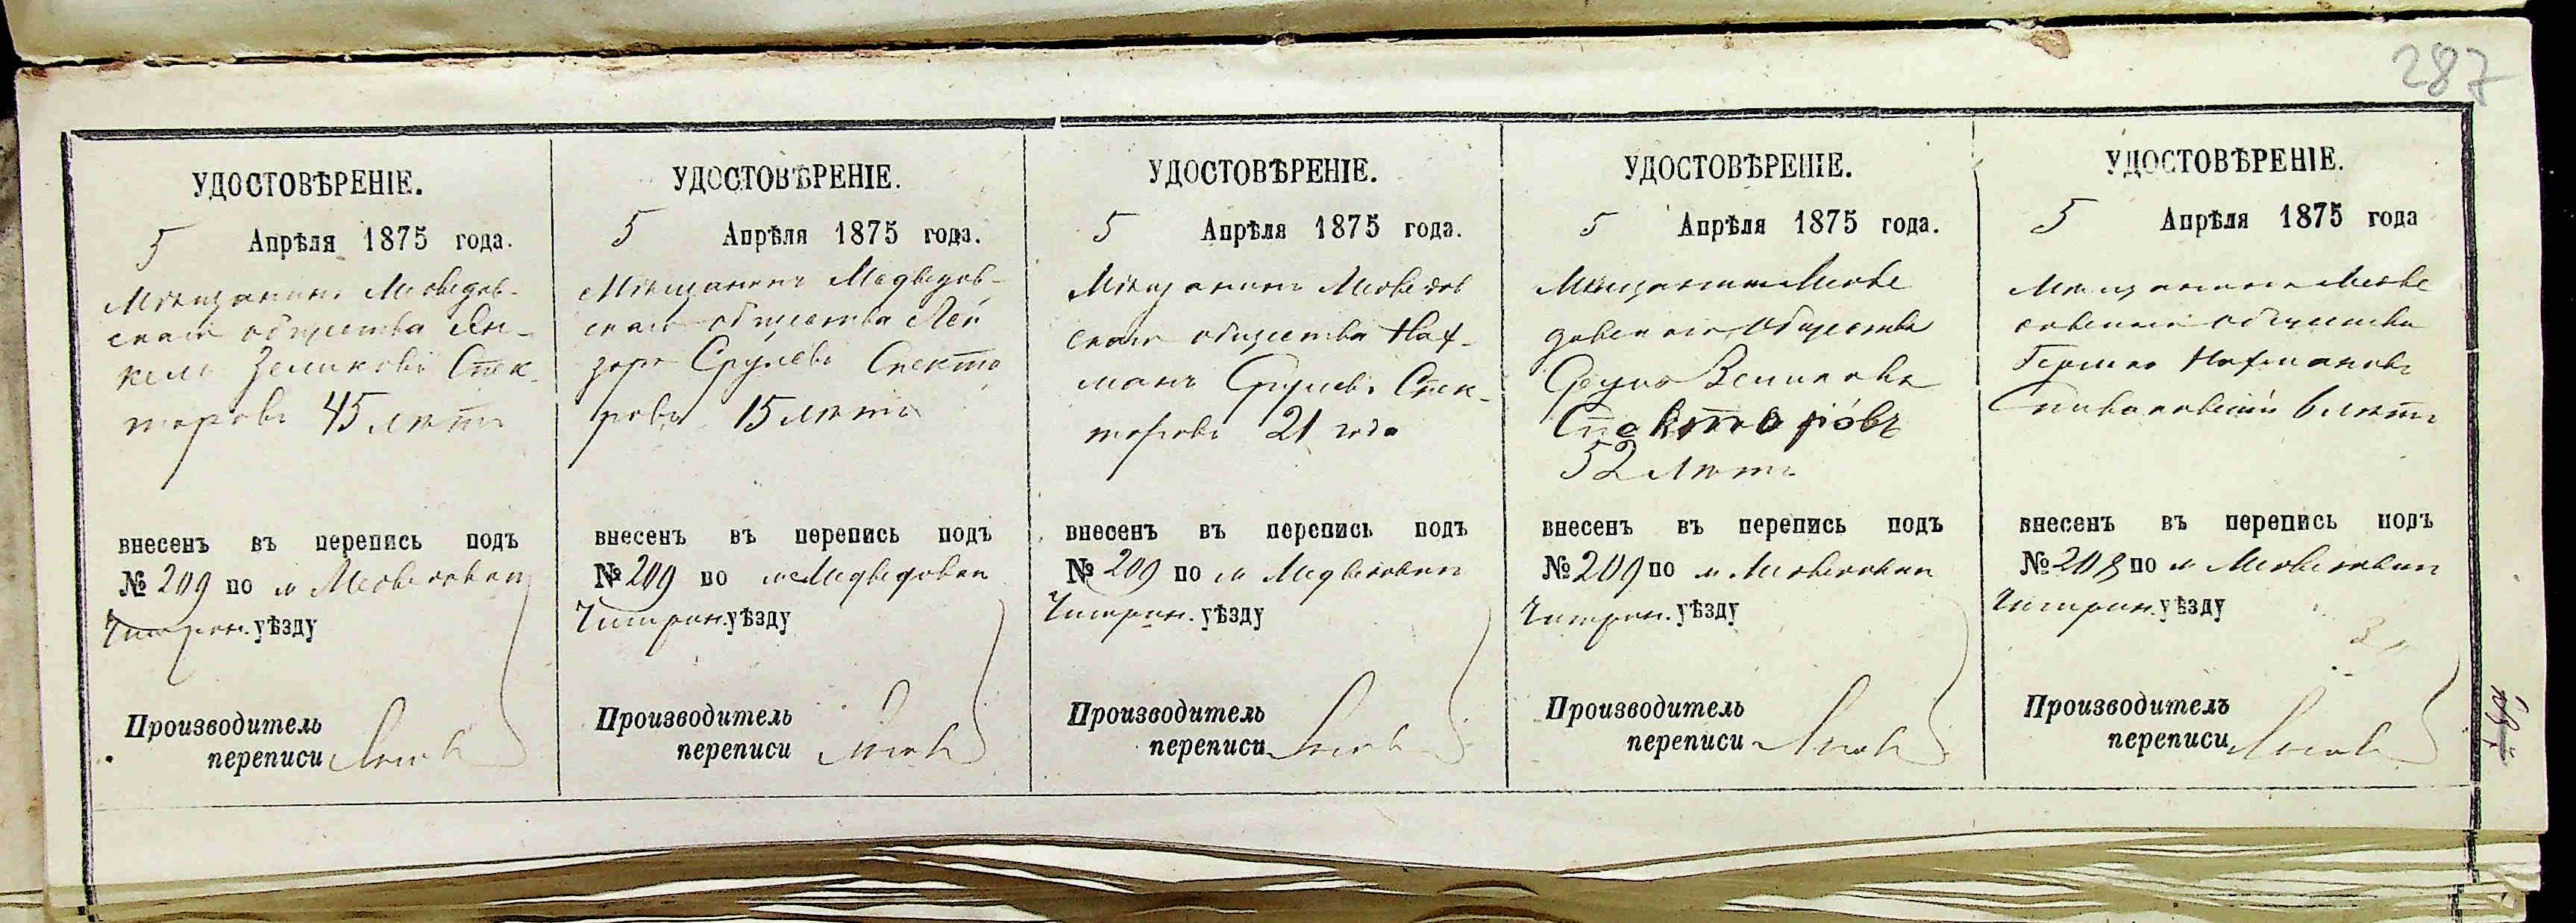 287
УДОСТОВѢРЕНІЕ.
5 Апрѣля 1875 года.
Мѣщанинъ Медведов-
скаго общества Ян-
кель Зеликовъ Спек-
торовъ 45 лѣтъ
внесенъ въ перепись подъ
№ 209 по м Медведовки
Чигрин. уѣзду
Производитель
переписи
УДОСТОВѢРЕНІЕ.
5 Апрѣля 1875 года.
Мѣщанинъ Медведов-
скаго общества Лей
зоръ Срулевъ Спекто
ровъ 15 лѣтъ
внесенъ въ перепись подъ
№ 209 по м Медведовки
Чигрин. уѣзду
Производитель
переписи
УДОСТОВѢРЕНІЕ.
5 Апрѣля 1875 года.
Мѣщанинъ Медведов
скаго общества Наф-
манъ Срулевъ Спек-
торовъ 21 года
внесенъ въ перепись подъ
№ 209 по м Медведовки
Чигрин. уѣзду
Производитель
переписи
УДОСТОВѢРЕНІЕ.
5 Апрѣля 1875 года.
Мѣщанинъ Медве
довскаго общества
Сруль Зеликовъ
Спекторовъ
52 лѣтъ
внесенъ въ перепись подъ
№ 209 по м Медведовки
Чигрин. уѣзду
Производитель
переписи
УДОСТОВѢРЕНІЕ.
5 Апрѣля 1875 года
Мѣщанинъ Медве
довскаго общества
Гершко Нафмановъ
Спиваковскій 6 лѣтъ
внесенъ въ перепись подъ
№ 208 по м Медведовки
Чигрин. уѣзду
Производитель
переписи